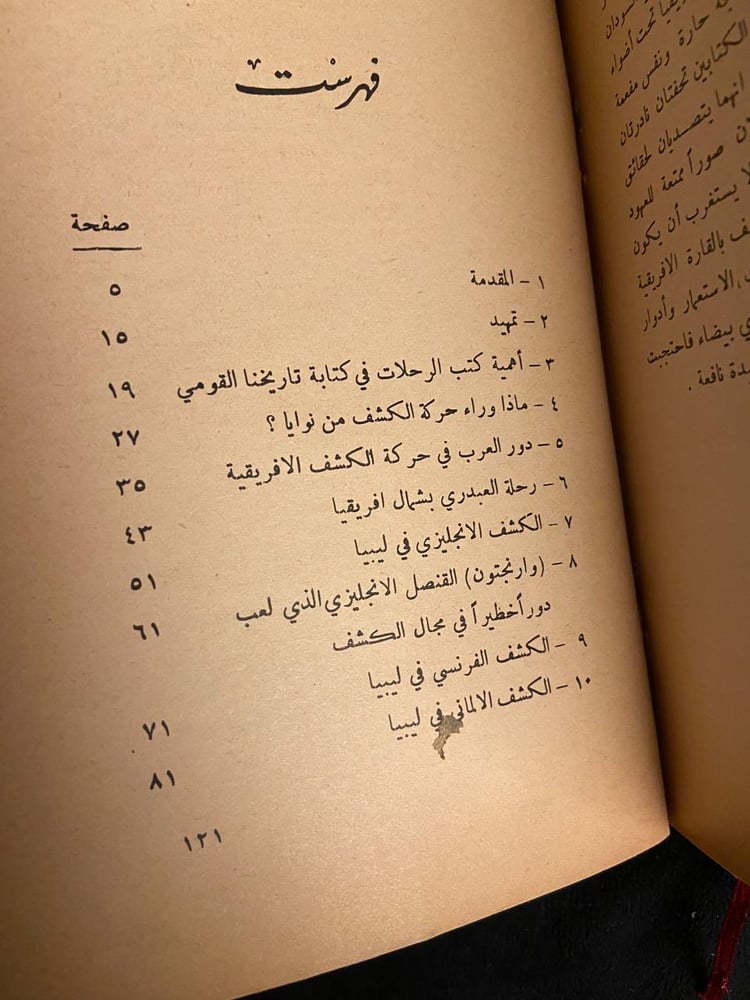 السودان
تحت أضواء
حارة ونفس مفعمة
الكتابين تحفتان نادرتان
انهما يتصديان لحقائق
صوراً ممتعة للعهود
لا يستغرب أن يكون
بالقارة الافريقية
الاستعمار وأدوار
بيضاء فاحتجبت
نافعة .
فهرست
صفحة
١ - المقدمة ٥
٢ - تمهيد ١٥
٣ - أهمية كتب الرحلات في كتابة تاريخنا القومي ١٩
٤ - ماذا وراء حركة الكشف من نوايا ؟ ٢٧
٥ - دور العرب في حركة الكشف الافريقية ٣٥
٦ - رحلة العبدري بشمال افريقيا ٤٣
٧ - الكشف الانجليزي في ليبيا ٥١
٨ - (وارنجتون) القنصل الانجليزي الذي لعب ٦١
دوراً خطيراً في مجال الكشف
٩ - الكشف الفرنسي في ليبيا ٧١
١٠ - الكشف الالماني في ليبيا ٨١
١٢١